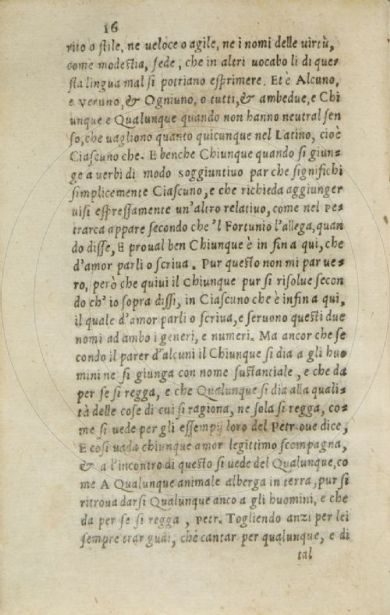 16
rito o stile, ne veloce o agile, ne i nomi delle virtù,
come modestia, fede, che in altri uocabo li di que=
sta lingua mal si potriano esprimere. Et è Alcuno,
e veruno, & Ogniuno, o tutti, & ambedue, e Chi
unque e Qualunque quando non hanno neutral sen
so, che uagliono quanto quicunque nel Latino, cioè
Ciascuno che. E benche Chiunque quando si giun=
ge a uerbi di modo soggiuntiuo par che significhi
simplicemente Ciascuno, e che richieda aggiunger
uisi espressamente un'altro relatiuo, come nel Pe=
trarca appare secondo che 'l Fortunio l'allega, quan
do disse, E proual ben Chiunque è in fin a qui, che
d'amor parli o scriua. Pur questo non mi par ue=
ro, però che quiui il Chiunque pur si risolue secon
do ch' io sopra dissi, in Ciascuno che è infin a qui,
il quale d'amor parli o scriua, e seruono questi due
nomi ad ambo i generi, e numeri. Ma ancor che se
condo il parer d'alcuni il Chiunque si dia a gli huo=
mini ne si giunga con nome sustanciale, e che da
per se si regga, e che Qualunque si dia alla quali=
tà delle cose di cui si ragiona, ne sola si regga, co=
me si uede per gli essempij loro del Petr. oue dice,
E cosi uada chiunque amor legittimo scompagna,
& a l'incontro di questo si uede del Qualunque, co
me A Qualunque animale alberga in terra, pur si
ritroua darsi Qualunque anco a gli huomini, e che
da per se si regga, petr. Togliendo anzi per lei
sempre trar guai, che cantar per qualunque, e di
tal